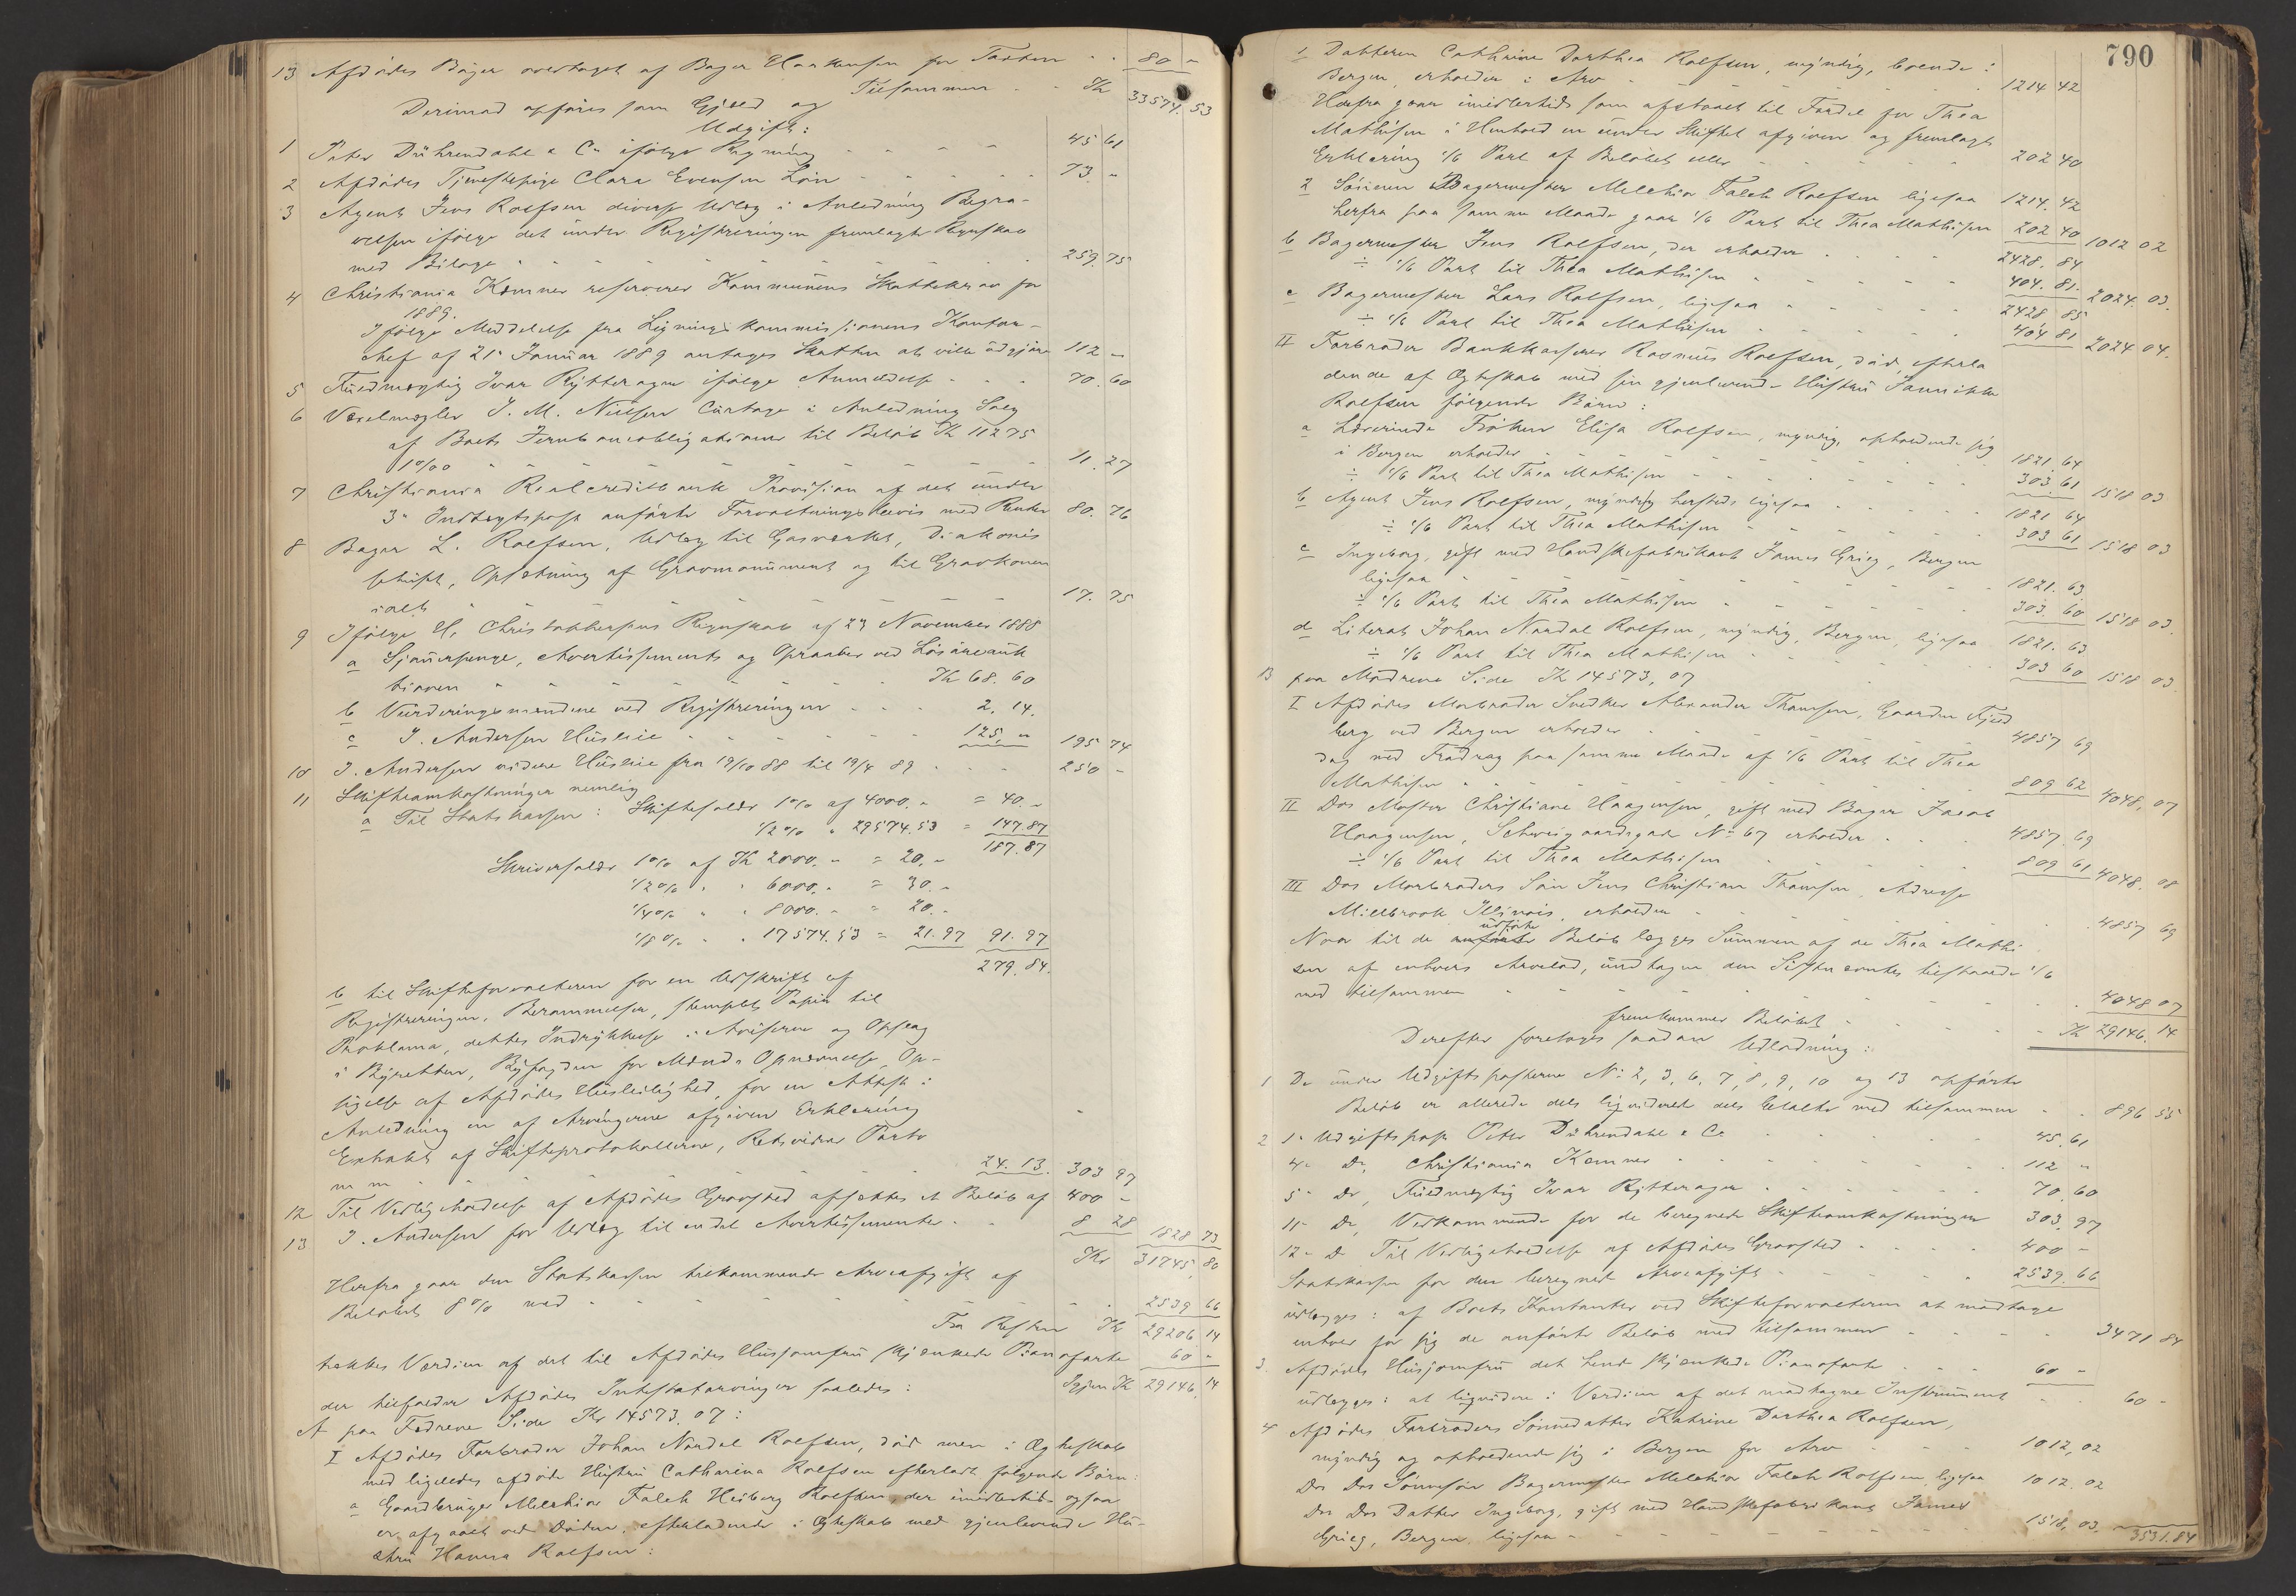 13 Afdödes Böger overtaget af Bager Haakensen for Taxten - - 80 -
Tilsammen - - Kr 33574.53
Derimod opföres som Gjeld og
Udgift:
1 Peter Dührendahl & Co ifölge Regning - - - - 45 61
2 Afdödes Tjenestepige Clara Evensen Lön - - - - 73 -
3 Agent Jens Rolfsen diverse Udlæg i Anledning Begra-
velsen ifölge det under Registreringen fremlagte Regnskab
med Bilage - - - - 259.75
4 Christiania Kemner reserverer Kommunens Skattekrav for
1889.
Ifölge Meddelelse fra Ligningskommissionens Kontor-
chef af 21 Januar 1889 antages Skatten at ville udgjöre 112 -
5 Fuldmægtig Ivar Rytterager ifölge Anmeldelse - - - 70.60
6 Vexelmægler J. M. Nielsen Curtage i Anledning Salg
af Boets Jernbaneobligationer til Belöb Kr 11275
1 o/oo - - - - 11.27
7 Christiania Realcreditbank Provision af det under
3" Indtægtspost anförte Forvaltningsbevis med Renter 80.76
8 Bager L. Rolfsen, Udlæg til Gasværket, Diakonis
sehuset, Opsætning af Gravmonument og til Gravkonen
ialt - - - - 17.75
9 Ifölge H. Christophersens Regnskab af 24 November 1888
a Sjauerpenge, Avertissements og Opraaber ved Lösöreauk
tionen - - - - Kr 68.60
b Vurderingsmændene ved Registreringen - - - 2.14.
c J. Andersen Husleie - - - - 125. - 195 74
10 J. Andersen videre Husleie fra 19/10 88 til 19/4 89 - - - 250 -
11 Skifteomkostninger nemlig
a Til Statskassen: Skiftesaldo 1% af 4000. - = 40. -
1/2% " 29574.53 = 147.87
187.87
Skriversaldo 1% af Kr 2000. - = 20. -
1/2% " " 6000. - = 30. -
1/4% " " 8000. - = 20. -
1/8% " " 17574.53 = 21.97 91.97
279.84.
b til Skifteforvalteren for en Udskrift af
Registreringen, Berammelser, stemplet Papir til
Proklama, dettes Indrykkelse i Aviserne og Opslag
i Byretten, Byfogden for Mænds Opnævnelse, Op-
sigelse af Afdödes Husleilighed, for en Attest i
Anledning en af Arvingerne afgiven Erklæring
Extrakt af Skifteprotokollerne, Retsvidner Porto
m m - - - - 24.13. 303 97
12 Til Vedligeholdelse af Afdödes Gravsted afsættes et Belöb af 400 -
13 J. Andersen for Udlæg til endel Avertissementer - - 8 28 1828 73
Kr 31745.80
Herfra gaar den Statskassen tilkommende Arveafgift af
Belöbet 8% med - - - - 2539 66
Fra Resten Kr 29206 14
trækkes Værdien af det til Afdödes Husjomfru skjænkede Pianoforte 60 -
Igjen Kr 29146.14
der tilfalder Afdödes Intestatarvinger saaledes:
A paa Fædrene Side Kr 14573.07:
I Afdödes Farbroder Johan Nordal Rolfsen, död men i Ægteskab
med ligeledes afdöde Hustru Catharina Rolfsen efterladt fölgende Börn:
a Gaardbruger Melchior Falch Heiberg Rolfsen, der imidlertid ogsaa
er afgaaet ved Döden, efterladende i Ægteskab med gjenlevende Hu-
stru Hanna Rolfsen:
790
1 Datteren Cathrine Dorthea Rolfsen, myndig, boende i
Bergen, erholder i Arv - - - - 1214 42
Herfra gaar imidlertid som afstaaet til Fordel for Thea
Mathisen i Henhold en under Skiftet afgiven og fremlagt
Erklæring 1/6 Part af Belöbet eller - - - - 202 40
2 Sönnen Bagermester Melchior Falch Rolfsen ligesaa 1214.42
herfra paa samme Maade gaar 1/6 Part til Thea Mathisen 202 40 1012 02
b Bagermester Jens Rolfsen, der erholder - - - - 2428.84
÷ 1/6 Part til Thea Mathisen - - - - 404.81. 2024.03.
c Bagermester Lars Rolfsen, ligesaa - - - - 2428 85
÷ 1/6 Part til Thea Mathisen - - - - 404 81 2024 04.
II Farbroder Bankkasserer Rasmus Rolfsen, död, efterla
dende af Ægteskab med sin gjenlevende Hustru Jannikke
Rolfsen fölgende Börn:
a Lærerinde Fröken Elisa Rolfsen, myndig, opholdende sig
i Bergen erholder - - - - 1821.64
÷ 1/6 Part til Thea Mathisen - - - - 303.61 1518 03
b Agent Jens Rolfsen, myndig hersteds ligesaa - - - - 1821 64
÷ 1/6 Part til Thea Mathisen - - - - 303 61 1518 03
c Ingeborg, gift med Handskefabrikant James Grieg, Bergen
ligesaa - - - - 1821.63
÷ 1/6 Part til Thea Mathisen - - - - 303.60 1518 03.
d Literat Johan Nordal Rolfsen, myndig, Bergen, ligesaa 1821.63
÷ 1/6 Part til Thea Mathisen - - - - 303 60 1518 03.
B paa Mödrene Side Kr 14573,07
I Afdödes Morbroder Snedker Alexander Thomsen, Gaarden Fjeld
berg ved Bergen erholder - - - - 4857 69
dog med Fradrag paa samme Maade af 1/6 Part til Thea
Mathisen - - - - 809 62 4048.07
II Dos Moster Christiane Haagensen, gift med Bager Jacob
Haagensen, Schweigaardsgade No 67 erholder - - - 4857.69
÷ 1/6 Part til Thea Mathisen - - - - 809 61 4048.08
III Dos Morbroders Sön Jens Christian Thomsen, Adresse
Millbrook Illinois, erholder - - - - 4857 69
udförte
Naar til de anförte Belöb lægges Summen af de Thea Mathi
sen af enhvers Arvelod, undtagen den Sidstnævntes tilstaaede 1/6
med tilsammen - - - - 4048 07
fremkommer Belöbet - - - - Kr 29146.14
Derefter foretages saadan Udlodning:
1 De under Udgiftsposterne No 2, 3, 6, 7, 8, 9, 10 og 13 opförte
Belöb er allerede dels liqvideret dels betalte med tilsammen - - 896 55
2 1" Udgiftspost Peter Dührendahl & Co - - - - 45.61
4" Do, Christiania Kemner - - - - 112 "
5" Do, Fuldmægtig Ivar Rytterager - - - - 70.60
11" Do, Vedkommende for de beregnede Skifteomkostninger 303.97
12" Do Til Vedligeholdelse af Afdödes Gravsted - - - - 400 -
Statskassen for den beregnede Arveafgift - - - - 2539.66
udlægges: af Boets Kontanter ved Skifteforvalteren at modtage
enhver for sig de anförte Belöb med tilsammen - - - - 3471 84
3. Afdödes Husjomfru det hende skjænkede Pianoforte - - - 60 -
udlægges: at liqvidere i Værdien af det modtagne Instrument - - 60 -
4 Afdödes Farbroders Sönnedatter Kathrine Dorthea Rolfsen,
myndig og opholdende sig i Bergen for Arv - - - 1012,02
Dos Dos Sönnesön Bagermester Melchior Falch Rolfsen, ligesaa 1012.02
Dos Dos Datter Ingeborg, gift med Handskefabrikant James
Grieg, Bergen ligesaa - - - - 1518,03. 3531.84